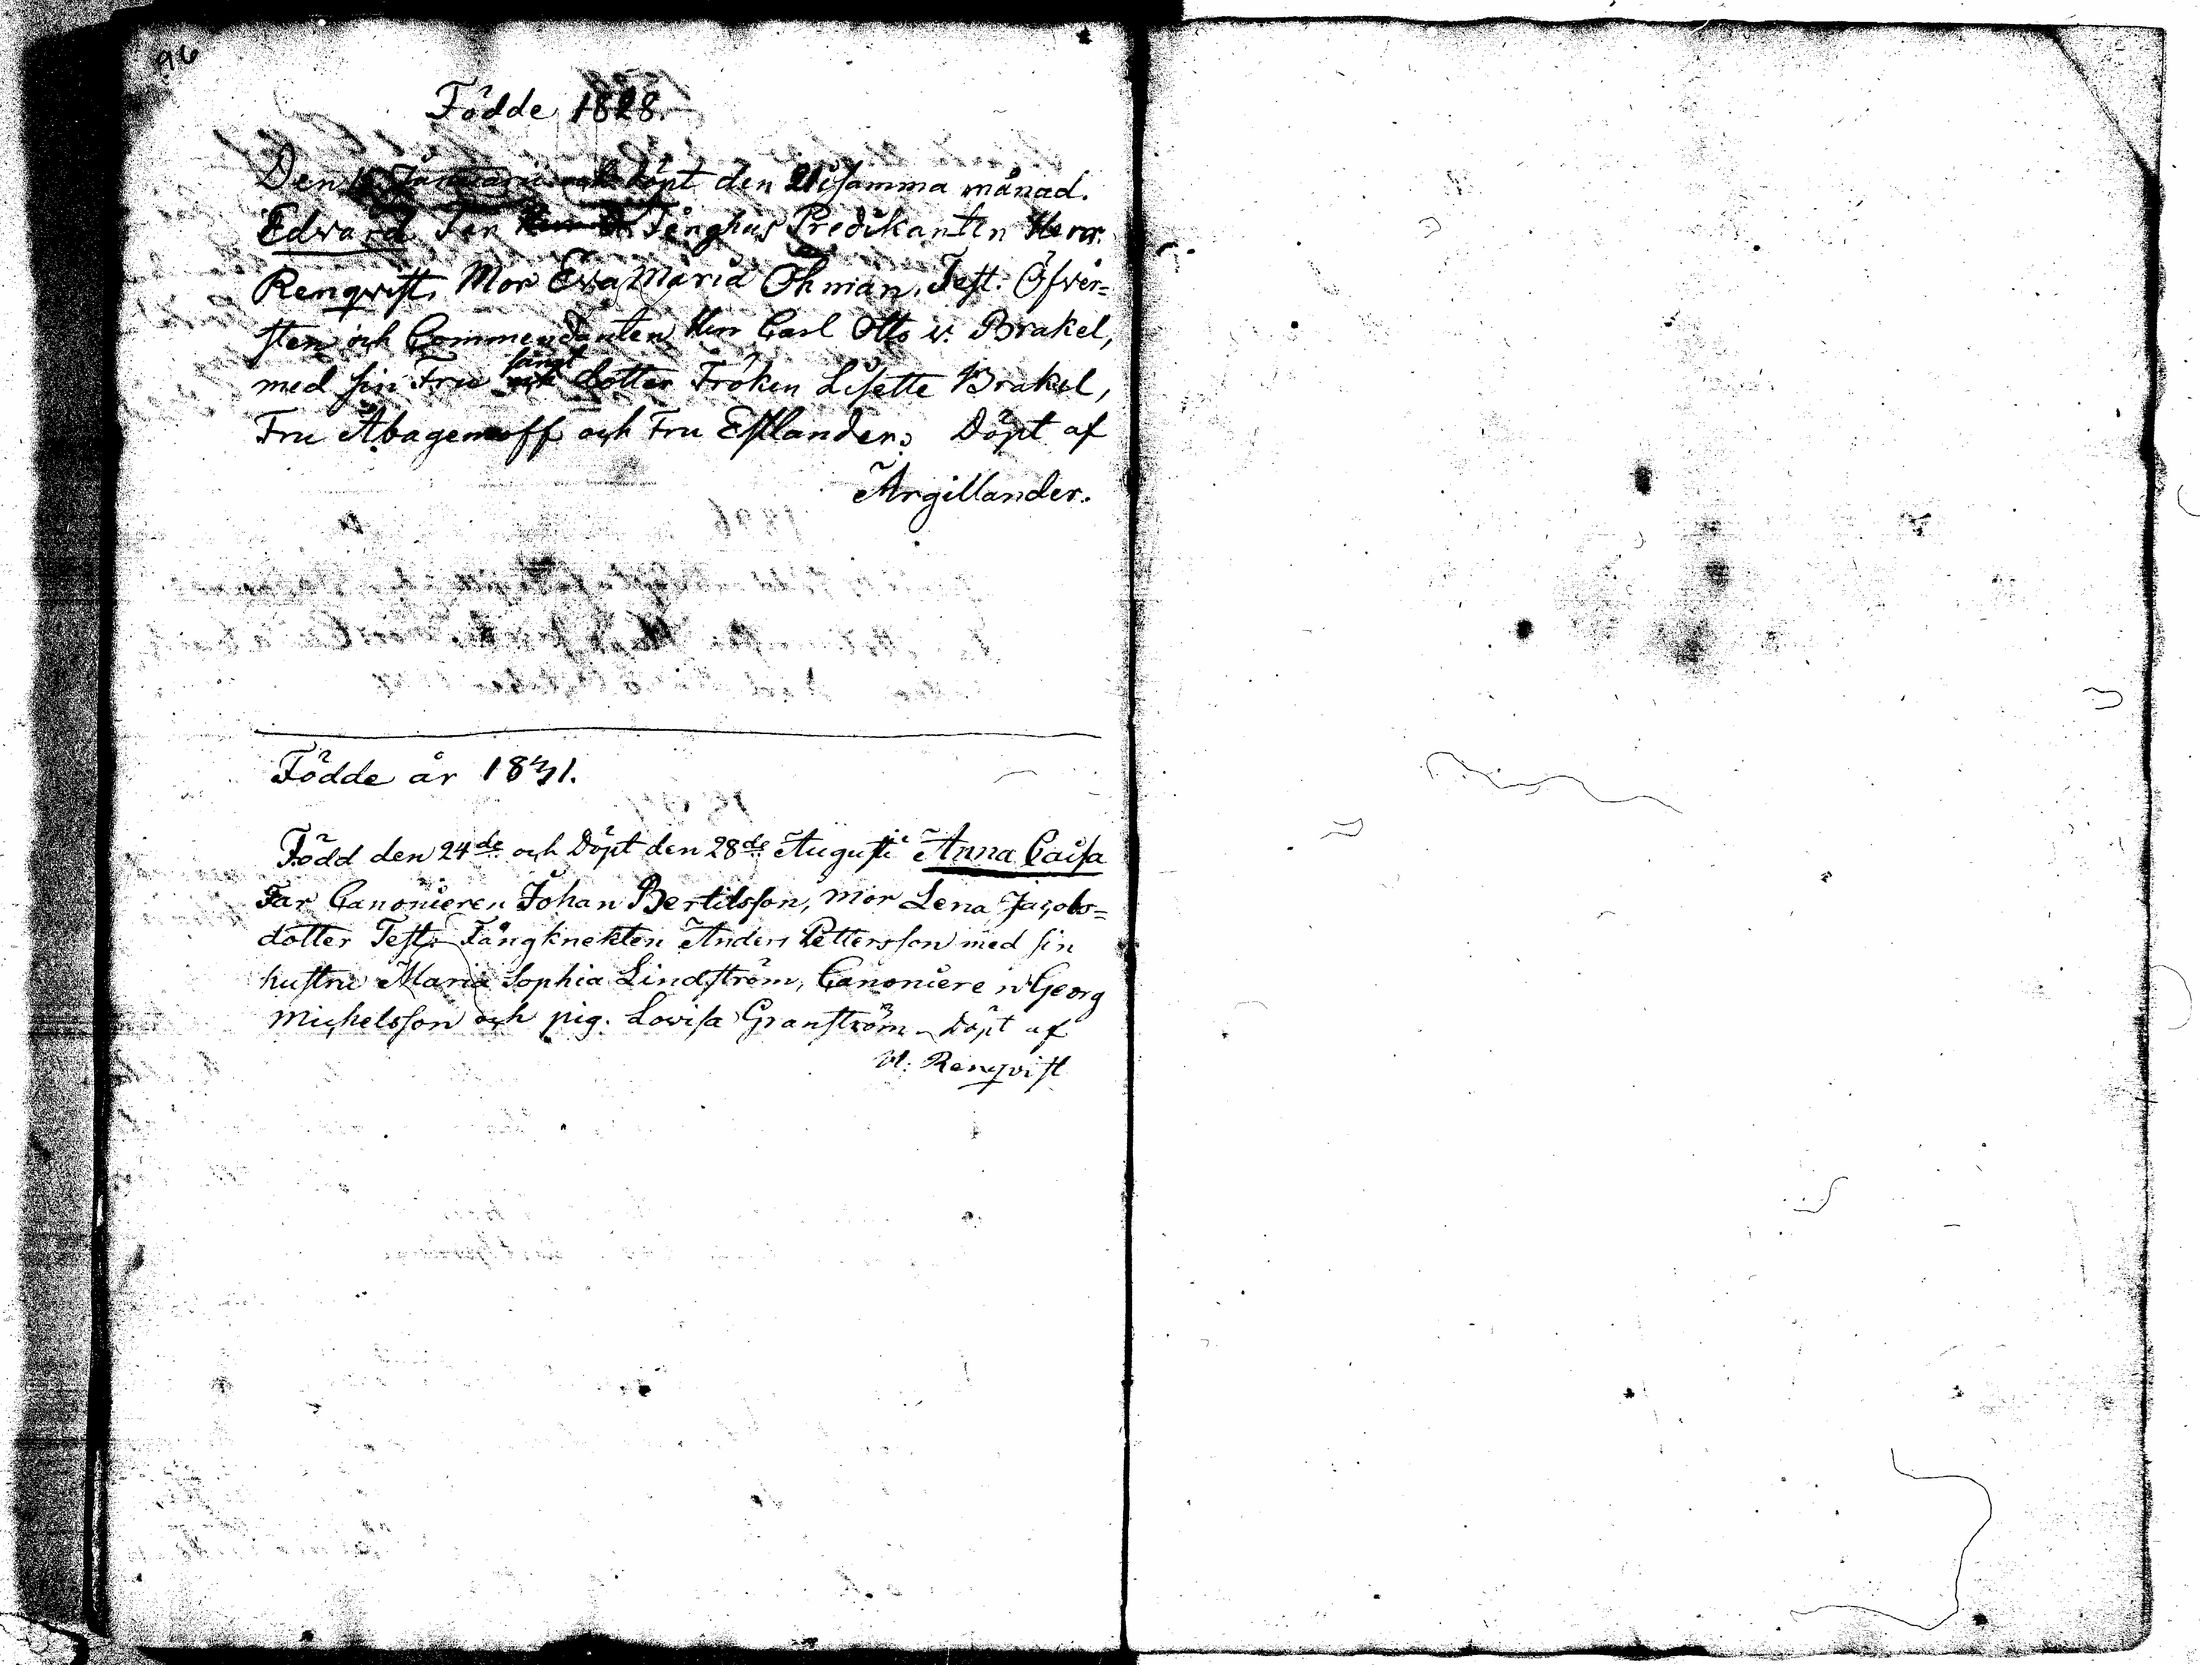 96
Födde 1828.
Den 15 Januarii och döpt den 21 i samma månad.
Edward Far Fånghus Predikanten Herr
Renqvist, Mor Eva Maria Öhman. Test: Öfver=
sten och Commendanten Herr Carl Otto v. Brakel,
samt
med sin Fru dotter Fröken Lisette Brakel,
Fru Abagenoff och Fru Estlander. Döpt af
Argillander.
Födde år 1831.
Född den 24de och Döpt den 28de Augusti Anna Caisa
Far Canonieren Johan Bertilsson, mor Lena Jacobs=
dotter Test: Fångknekten Anders Pettersson med sin
hustru Maria Sophia Lindström, Canonieren Georg
Michelsson och pig. Lovisa Granström. Döpt af
H: Renqvist